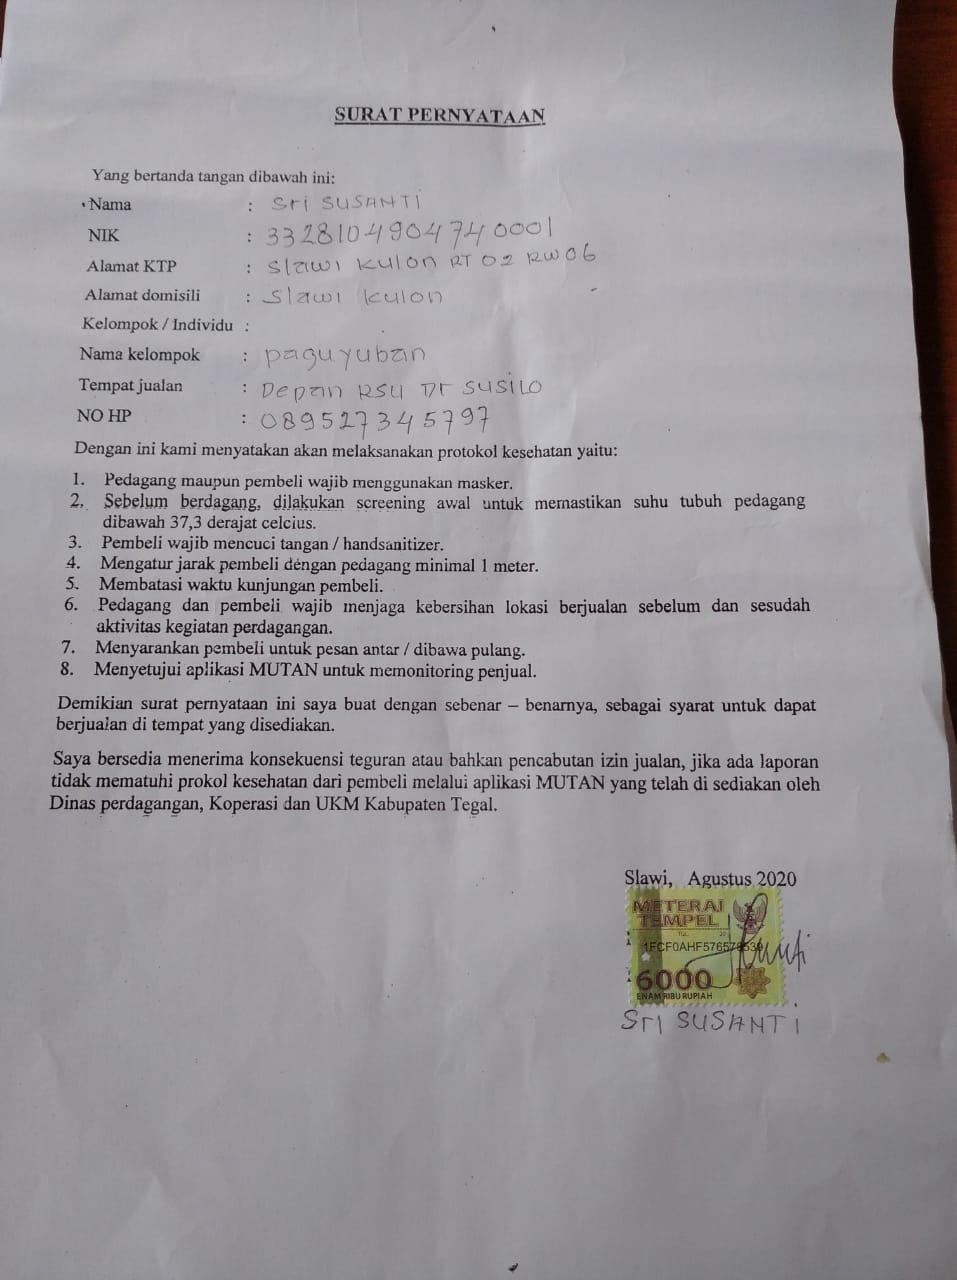 SURAT PERNYATAAN
Yang bertanda tangan dibawah ini:
Nama : Sri SUSANTI
NIK : 3328104904740001
Alamat KTP : Slawi Kulon RT 02 RW 06
Alamat domisili : Slawi Kulon
Kelompok / Individu :
Nama kelompok : paguyuban
Tempat jualan : Depan RSU Dr SUSILO
NO HP : 089527345797
Dengan ini kami menyatakan akan melaksanakan protokol kesehatan yaitu:
1. Pedagang maupun pembeli wajib menggunakan masker.
2. Sebelum berdagang, dilakukan screening awal untuk memastikan suhu tubuh pedagang
dibawah 37,3 derajat celcius.
3. Pembeli wajib mencuci tangan / handsanitizer.
4. Mengatur jarak pembeli dengan pedagang minimal 1 meter.
5. Membatasi waktu kunjungan pembeli.
6. Pedagang dan pembeli wajib menjaga kebersihan lokasi berjualan sebelum dan sesudah
aktivitas kegiatan perdagangan.
7. Menyarankan pembeli untuk pesan antar / dibawa pulang.
8. Menyetujui aplikasi MUTAN untuk memonitoring penjual.
Demikian surat pernyataan ini saya buat dengan sebenar – benarnya, sebagai syarat untuk dapat
berjualan di tempat yang disediakan.
Saya bersedia menerima konsekuensi teguran atau bahkan pencabutan izin jualan, jika ada laporan
tidak mematuhi prokol kesehatan dari pembeli melalui aplikasi MUTAN yang telah di sediakan oleh
Dinas perdagangan, Koperasi dan UKM Kabupaten Tegal.
Slawi, Agustus 2020
METERAI
TEMPEL
6000
ENAM RIBU RUPIAH
Sri SUSANTI